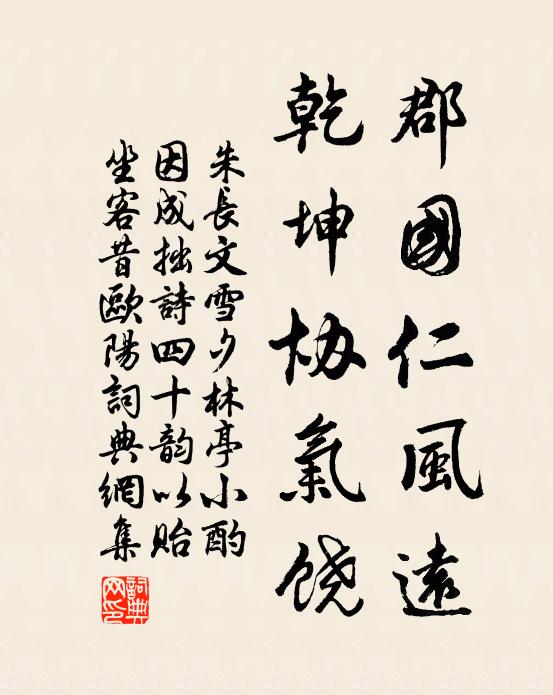 郡國仁風遠
乾坤协氣饶
朱長文雪夕林亭小酌
因成拙詩四十韵以貽
坐客昔歐陽詞典網集
詞典网印